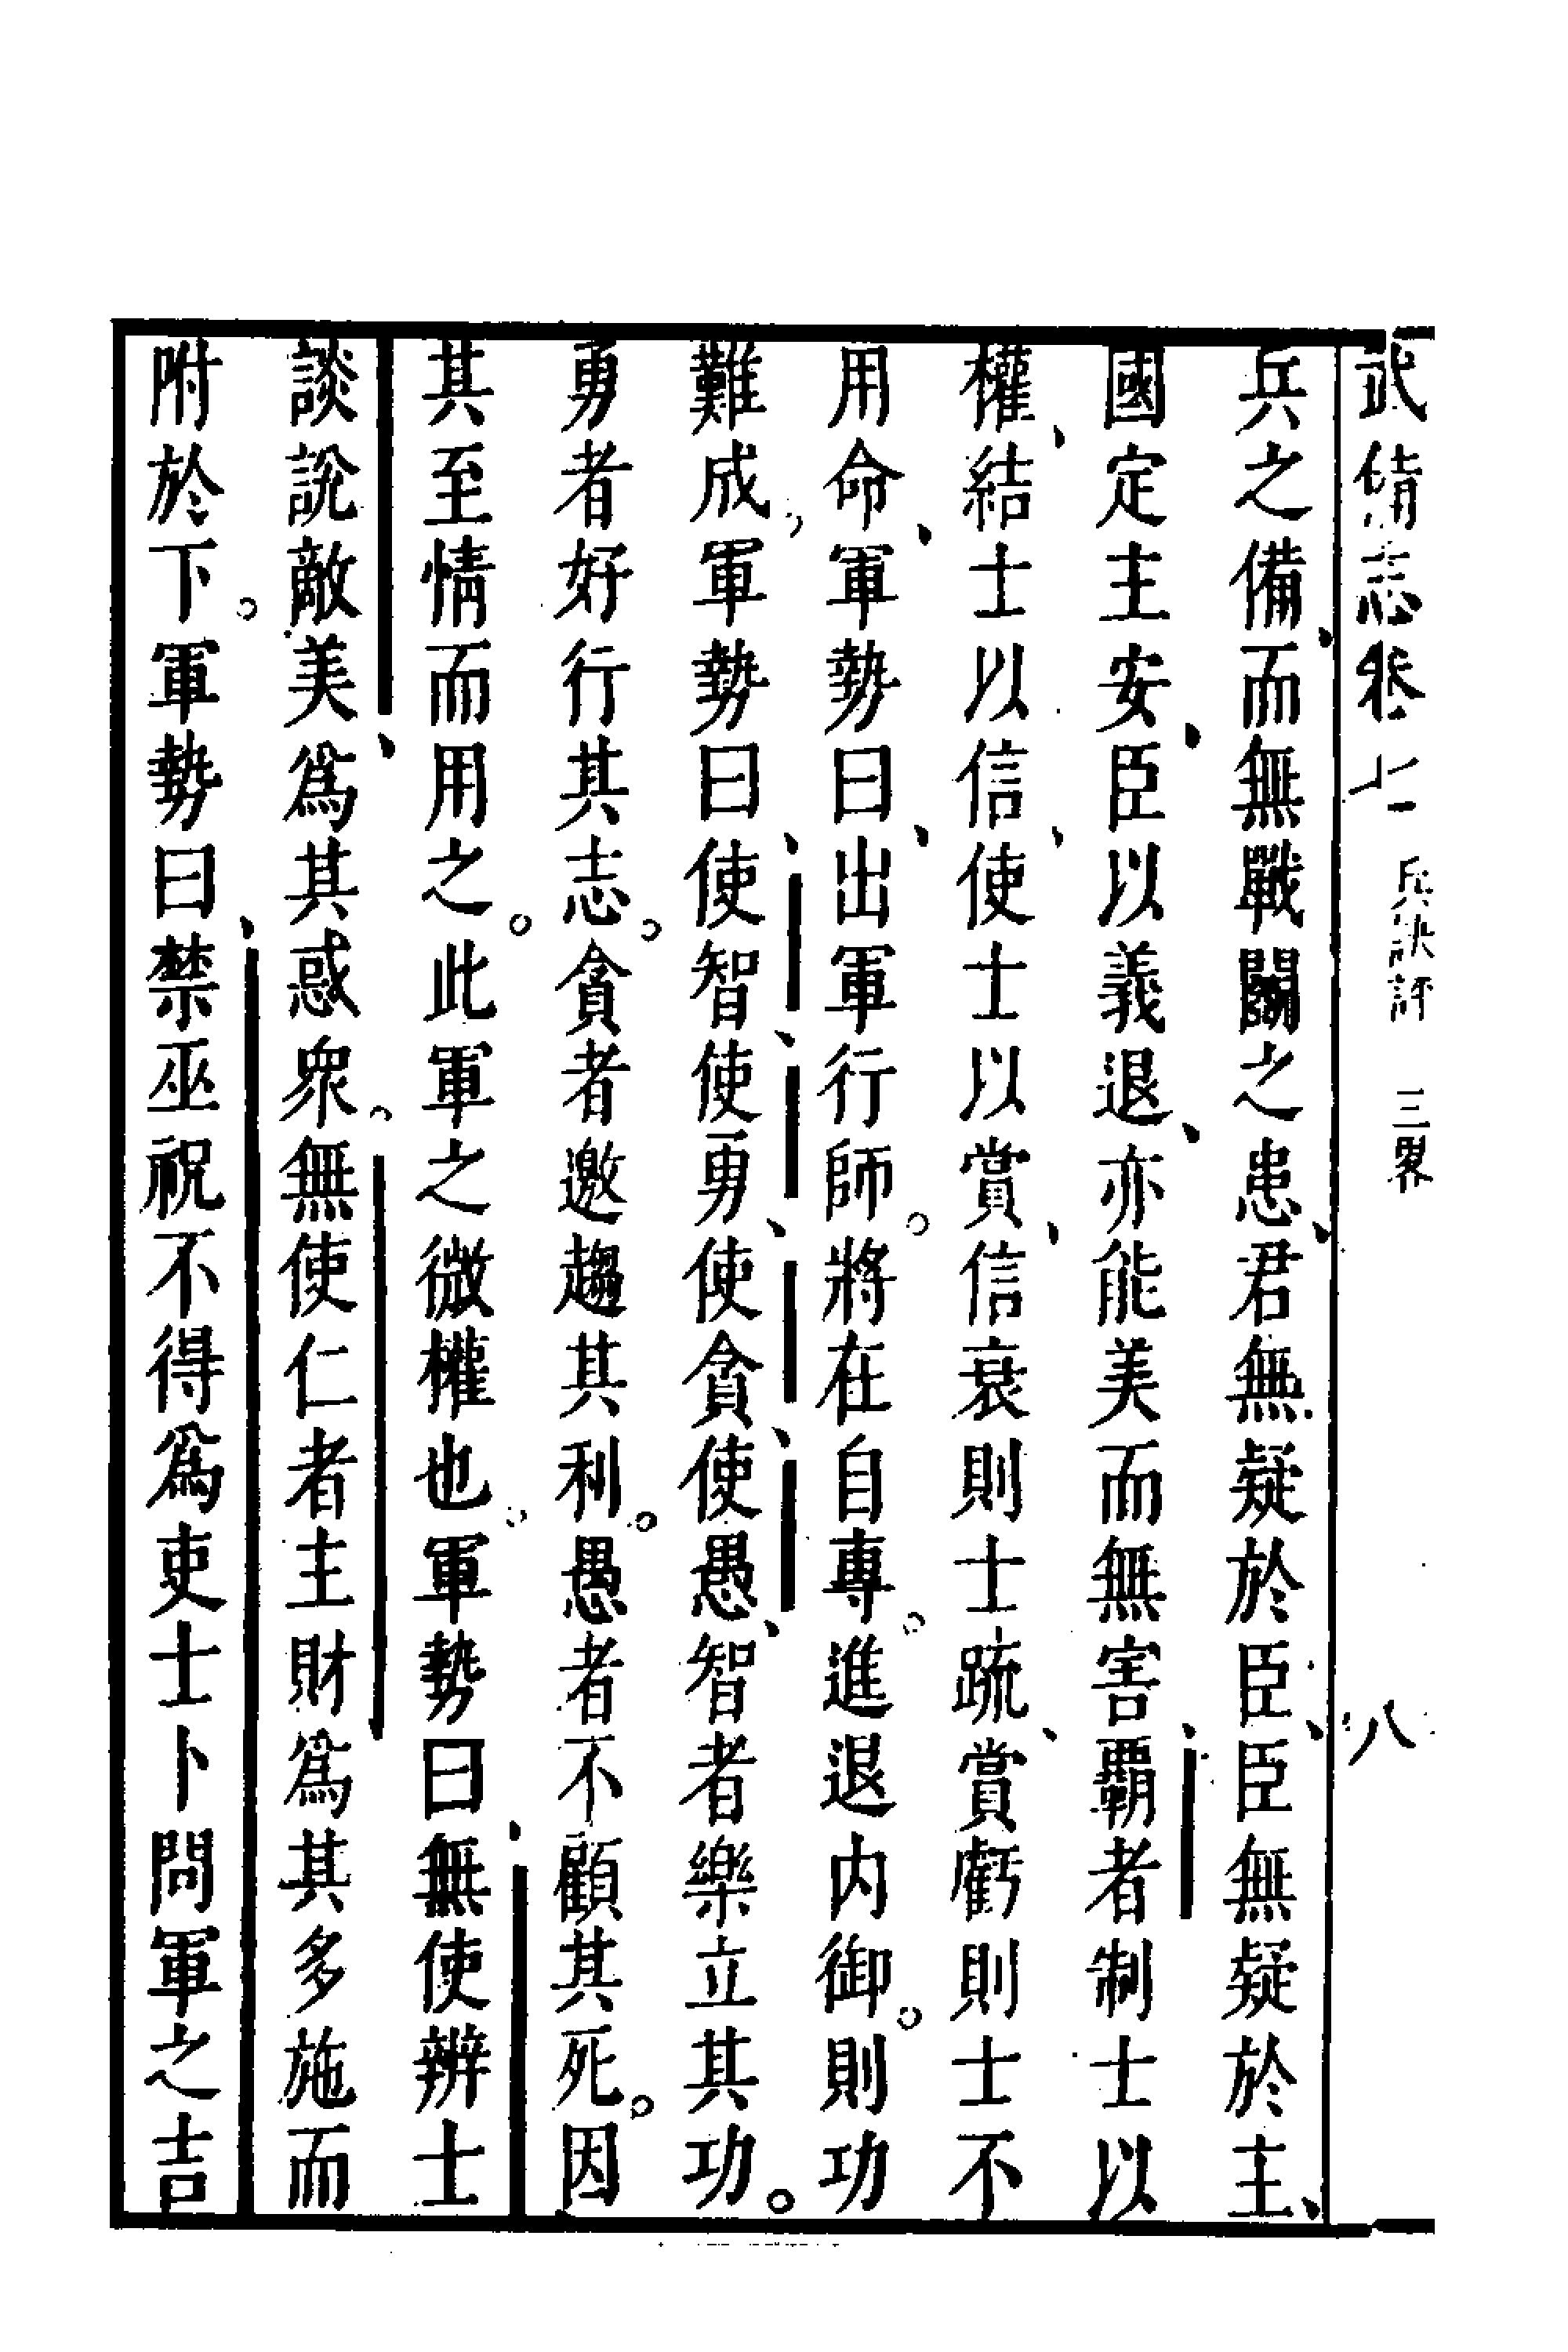 武備志卷十一 兵訣評 三畧 八
兵之備、而無戰鬭之患、君無疑於臣、臣無疑於主、
國定主安、臣以義退、亦能美而無害、覇者制士以
權、結士以信、使士以賞、信衰則士疏、賞虧則士不
用命、軍勢曰、出軍行師。將在自專。進退內御。則功
難成、軍勢曰、使智、使勇、使貪、使愚、智者樂立其功。
勇者好行其志。貪者邀趨其利。愚者不顧其死。因
其至情而用之。此軍之微權也。軍勢曰、無使辨士
談說敵美、爲其惑衆。無使仁者主財爲其多施而
附於下。軍勢曰、禁巫祝不得爲吏士卜問軍之吉